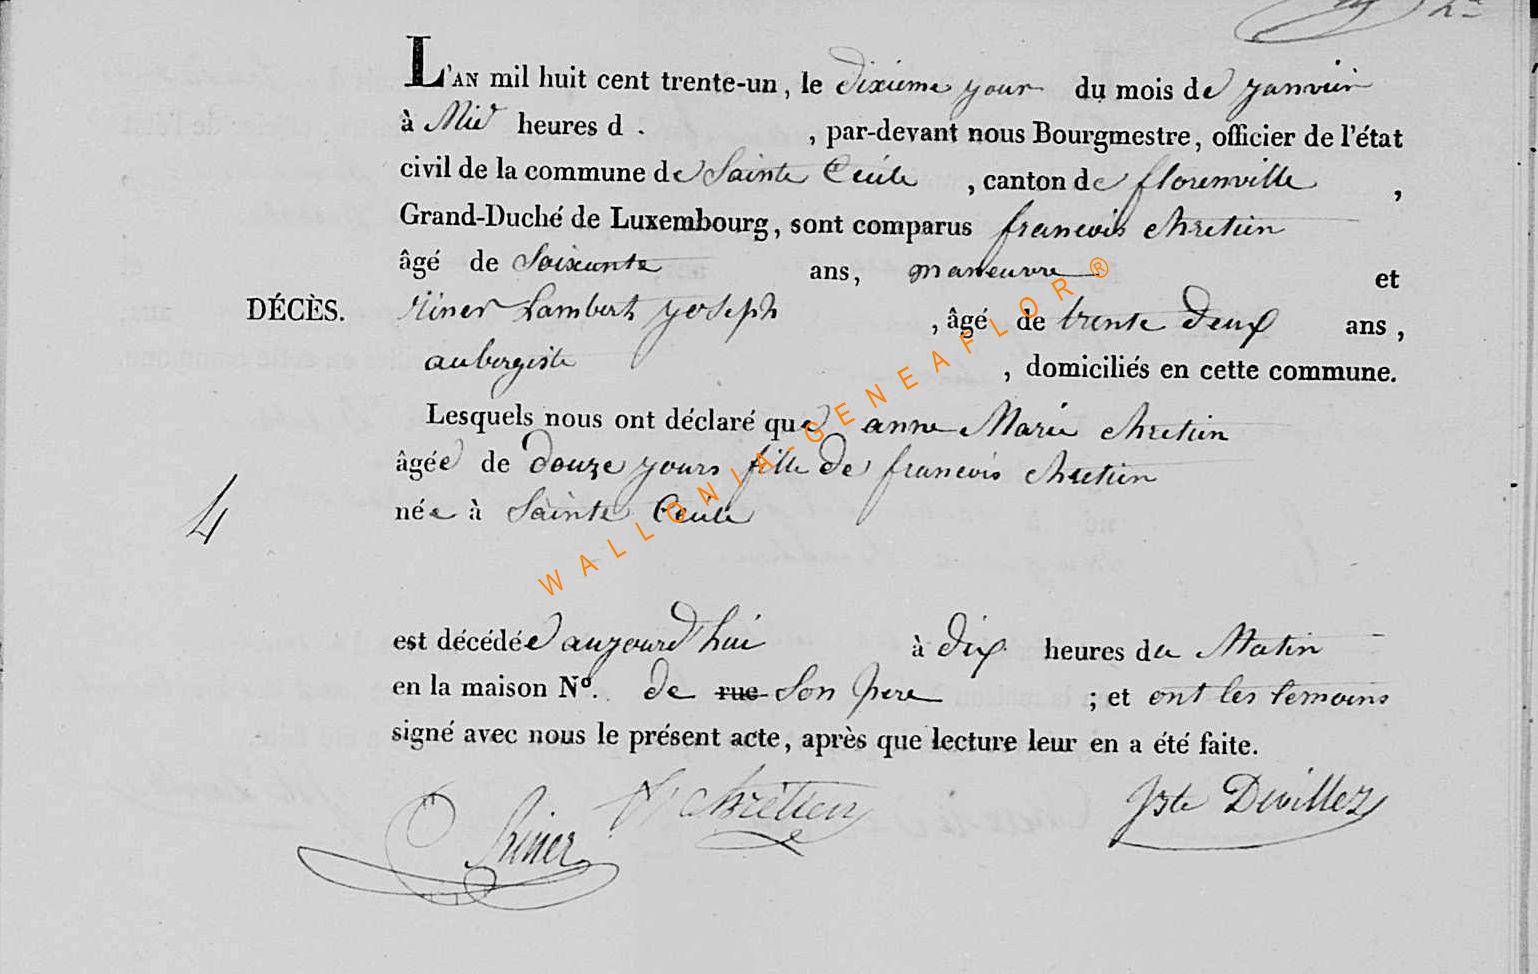 L'AN mil huit cent trente-un, le dixieme your du mois de yanvier
à Mid heures d . , par-devant nous Bourgmestre, officier de l'état
civil de la commune de Sainte Cecile , canton de florenville ,
Grand-Duché de Luxembourg, sont comparus francois chretien
âgé de Soixante ans, maneuvre et
DÉCÈS. Lambert yoseph , âgé de trente Deux ans,
aubergiste , domiciliés en cette commune.
Lesquels nous ont déclaré que anne Marie chretien
âgée de douze yours fille de francois chretien
4 née à Sainte Cecile
est décédée auyourd'hui à Dix heures du Matin
en la maison N°. de rue Son pere ; et ont les temoins
signé avec nous le présent acte, après que lecture leur en a été faite.
chrétien Jbte Devillez
WALLONIA-GENEAFLOR®